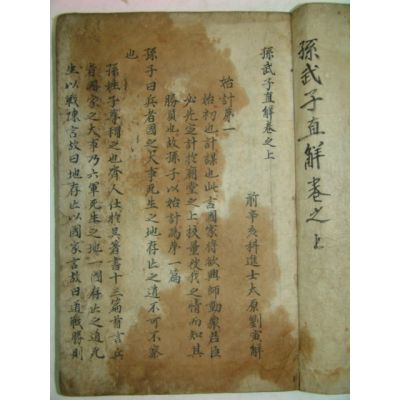 孫武子直解卷之上
孫武子直解卷之上
前辛亥科進士太原劉寅解
始計第一
始初也計謀也此言國家將欲興師動衆君臣
必先定計於廟堂之上挍量彼我之情而知其
勝負也故孫子以始計為第一篇
孫子曰兵者國之大事死生之地存亡之道不可不察
也
孫姓子尊稱之也齊人仕於吳著書十三篇首言兵
者國家之大事乃六軍死生之地一國存亡之道死
生以戰陳言故曰地存亡以國家言故曰道戰勝則